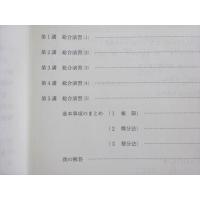 第1講 総合演習(1)
第2講 総合演習(2)
第3講 総合演習(3)
第4講 総合演習(4)
第5講 総合演習(5)
基本事項のまとめ (1 極限)
(2 微分法)
(3 積分法)
の解答